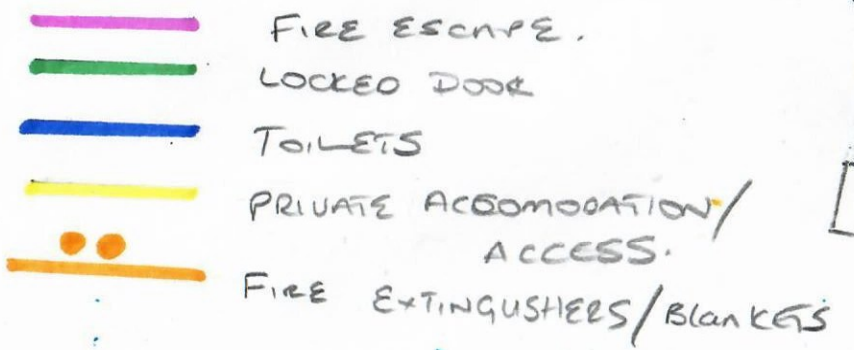 FIRE ESCAPE.
LOCKED DOOR
TOILETS
PRIVATE ACCOMODATION/
ACCESS.
FIRE EXTINGUSHERS/BlanKETS